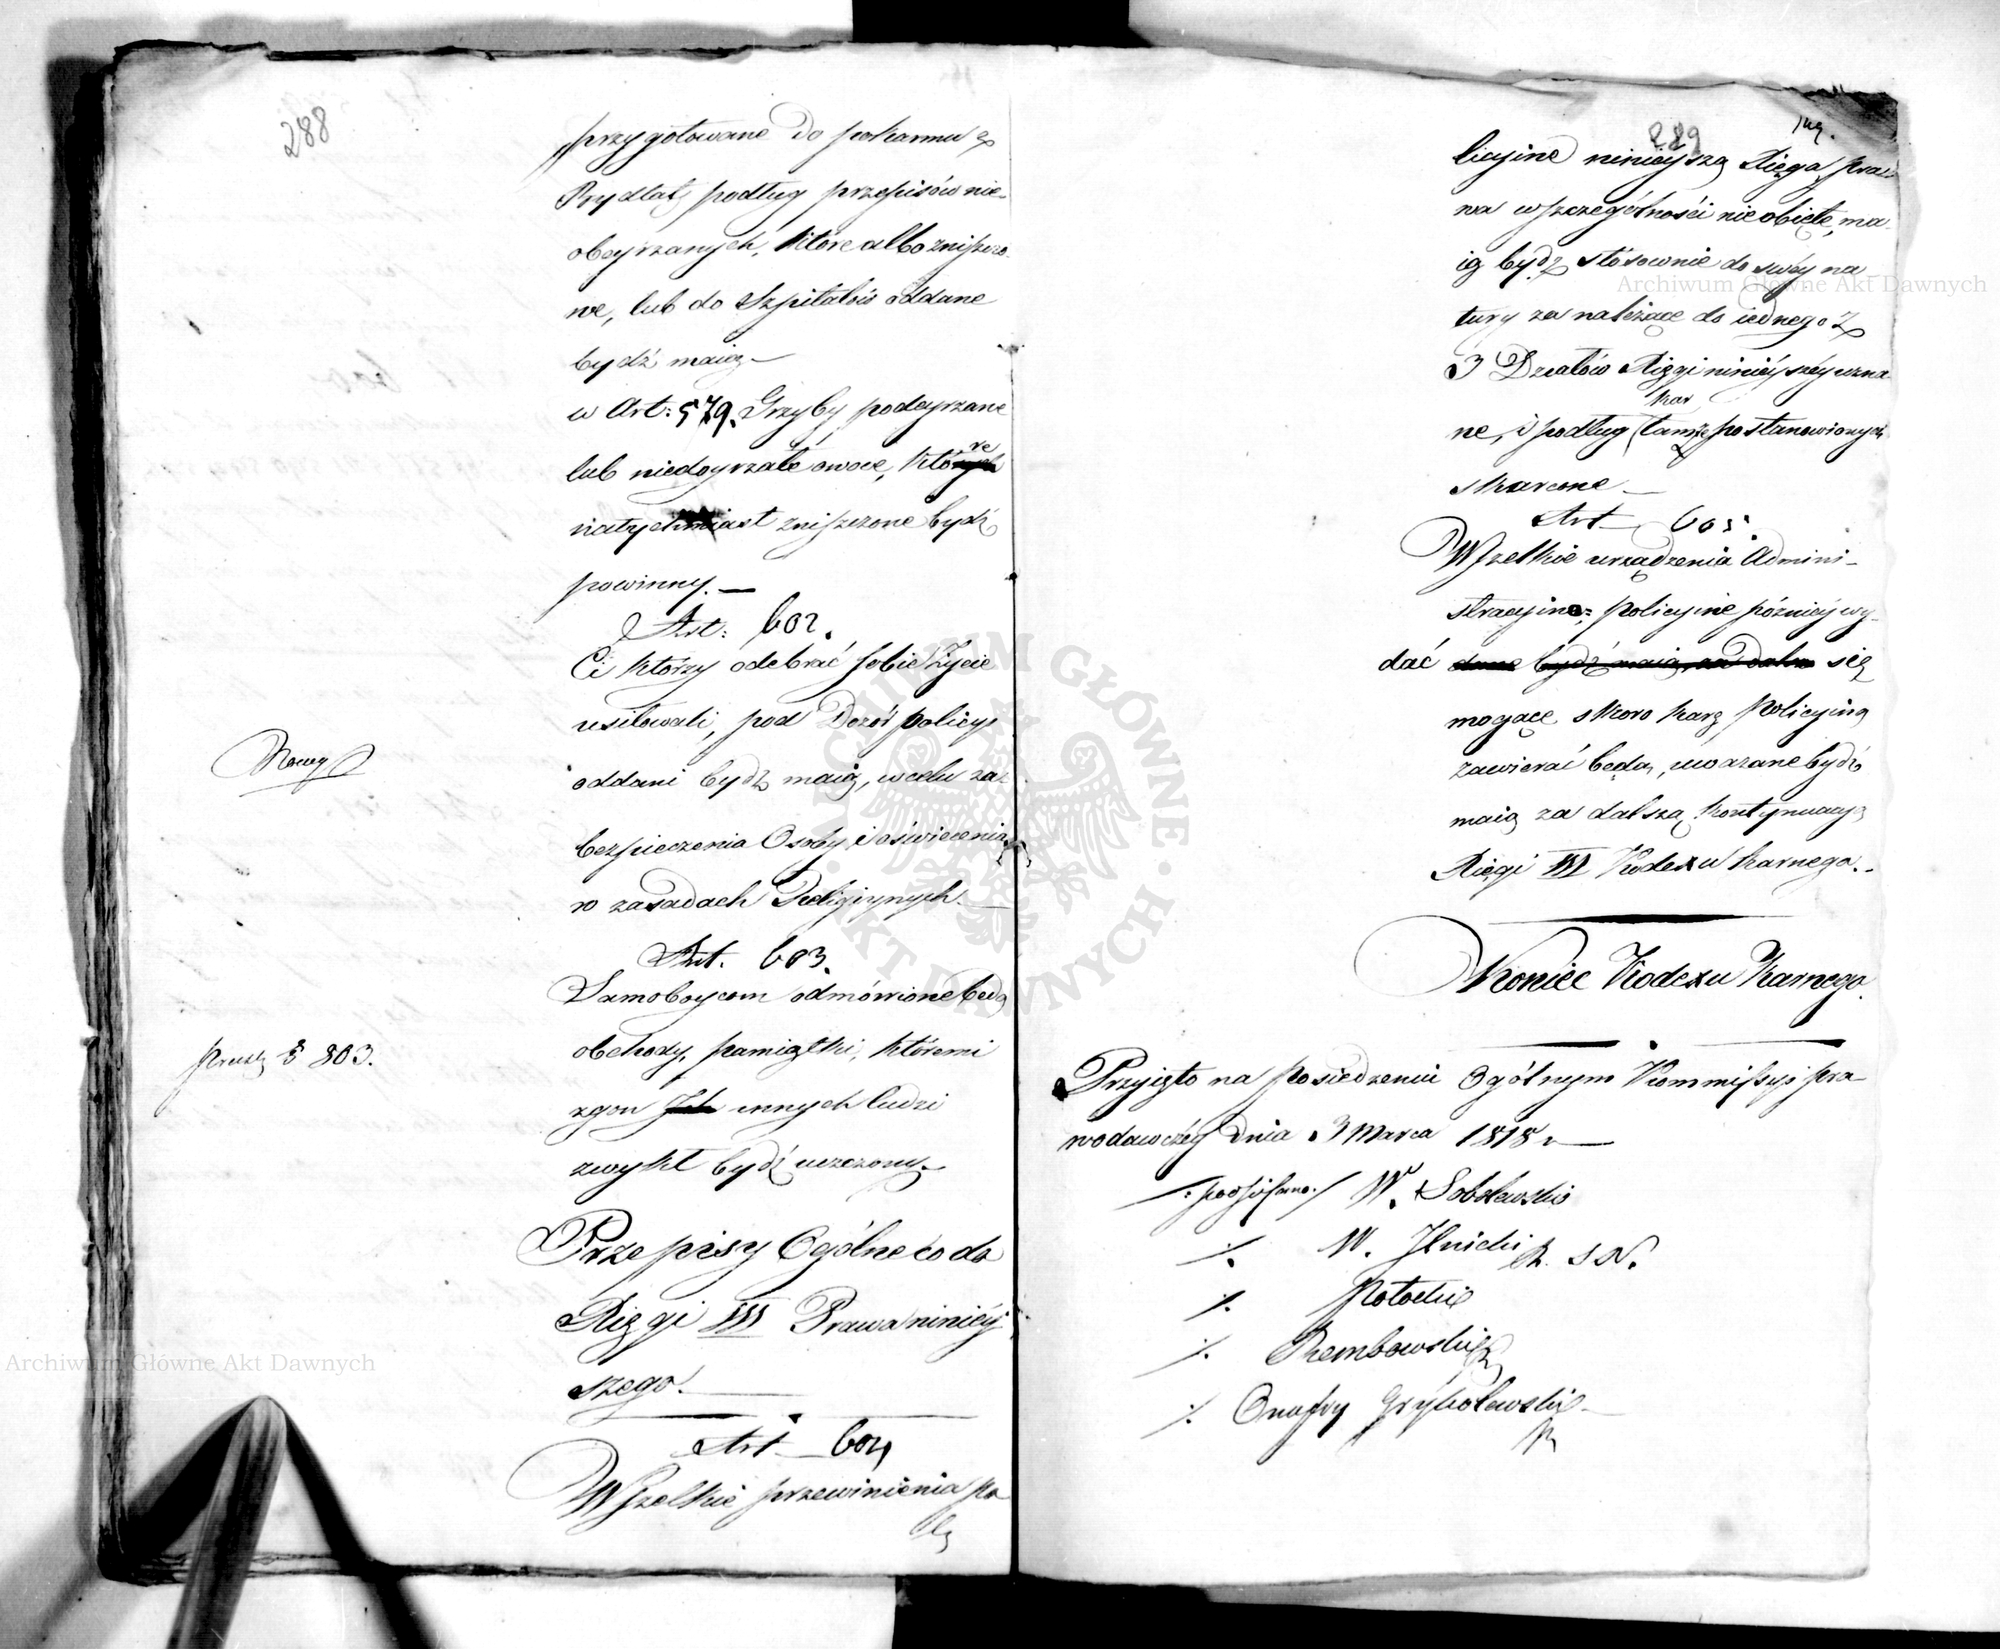 288
przygotowane do pokarmu z
Bydląt podług przepisów nie-
obeyrzanych, które albo zniszczo-
ne, lub do Szpitalów oddane
bydź maią —
w Art: 579. Grzyby podeyrzane
lub niedoyrzałe owoce, które
natychmiast zniszczone bydź
powinny. —
Art: 602.
Ci którzy odebrać sobie życie
usiłowali, pod Dozór policyi
Nowy
oddani bydź maią, w celu za-
bezpieczenia Osoby i oświecenia
w zasadach Religiynych. —
Art. 603.
Samoboycom odmówione będą
obchody, pamiątki, któremi
Prusk § 803.
zgon innych ludzi
zwykł bydź uczczony. —
Przepisy Ogólne co do
Xięgi III Prawa niniéy
szego. —
Art — 604
Wszelkie przewinienia po
li
289
licyine ninieyszą Xięgą pra
wa w szczególności nie obięte, ma-
ią bydź stósownie do swéy na
tury za należące do iednego z
3 Działów Xięgi ninieyszéy uzna
kar
ne, i podług tamże postanowionych
skarcone —
Art — 605.
Wszelkie urządzenia Admini-
stracyino: policyine późniéy wy-
dać dane bydź maią, na dal się
mogące skoro karę policyiną
zawierać będą, uważane bydź
maią za dalszą kontynuacyę
Xięgi III Kodexu karnego. -
Koniec Kodexu Karnego.
Przyięto na posiedzeniu Ogólnym Kommissyi pra-
wodawczéy dnia 3 Marca 1818 r —
/: podpisano :/ W. Sobolewski
/. M. Ilnicki R. S. N.
/. Potocki
/. Rembowski
/. Onufry Grzybołewski —
Archiwum Główne Akt Dawnych
Archiwum Główne Akt Dawnych
ARCHIWUM GŁÓWNE · AKT DAWNYCH ·